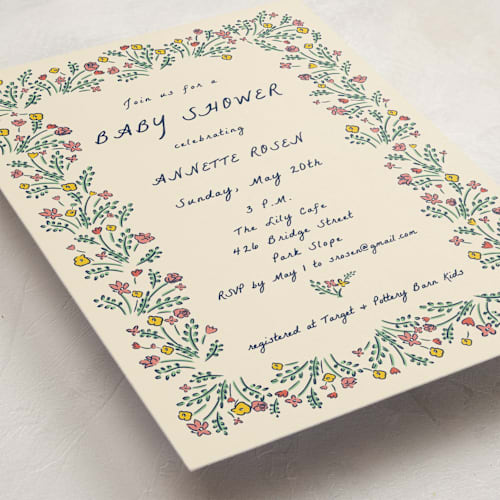 Join us for a
BABY SHOWER
celebrating
ANNETTE ROSEN
Sunday, May 20th
3 P.M.
The Lily Cafe
426 Bridge Street
Park Slope
RSVP by May 1 to srosen@gmail.com
registered at Target & Pottery Barn Kids